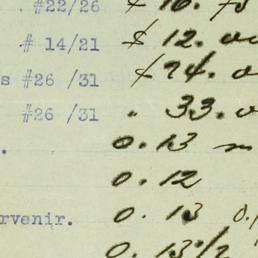 . #22/26 $ 10.
# 14/21 $ 12.
s #26 /31 $ 74.
#26 /31 " 33.
. 0.13
0.12
rvenir. 0.13 0.
0.13 1/2